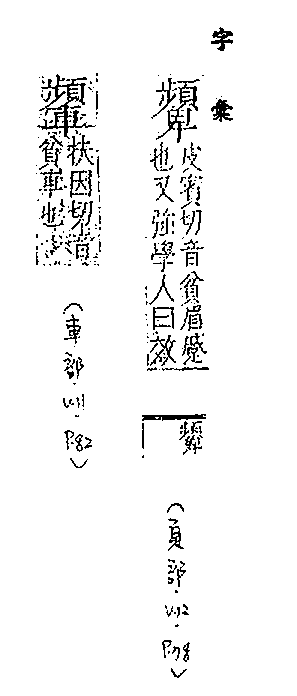 字彙
顰
皮賓切音貧眉蹙
也又強學人曰效
顰
(頁部·V.12·P.78)
扶因切音
貧車也
(車部·V.11·P.82)